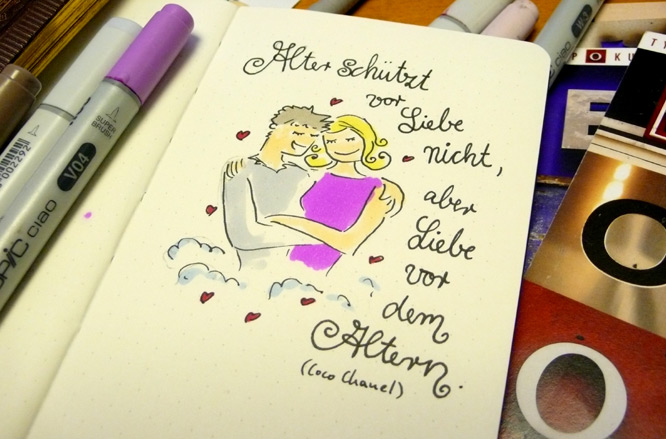 Alter schützt
vor Liebe
nicht,
aber
Liebe
vor
dem
Altern.
(Coco Chanel)
SUPER
BRUSH
V04
ciao
ciao
O
O